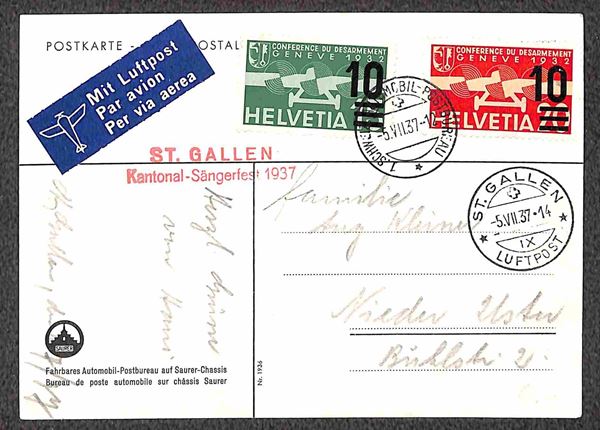 POSTKARTE -
POSTAL
Mit Luftpost
Par avion
Per via aerea
CONFERENCE DU DESARMEMENT
GENEVE 1932
10
HELVETIA
CONFERENCE DU DESARMEMENT
GENEVE 1932
10
HELVETIA 20
-5.VII.37-
ST. GALLEN
Kantonal-Sängerfest 1937
ST. GALLEN
-5.VII.37·14
IX
LUFTPOST
Familie
Aug Kleiner
Nieder Uster
Herzl Grüsse
von
SAURER
Fahrbares Automobil-Postbureau auf Saurer-Chassis
Bureau de poste automobile sur châssis Saurer
Nr. 1936